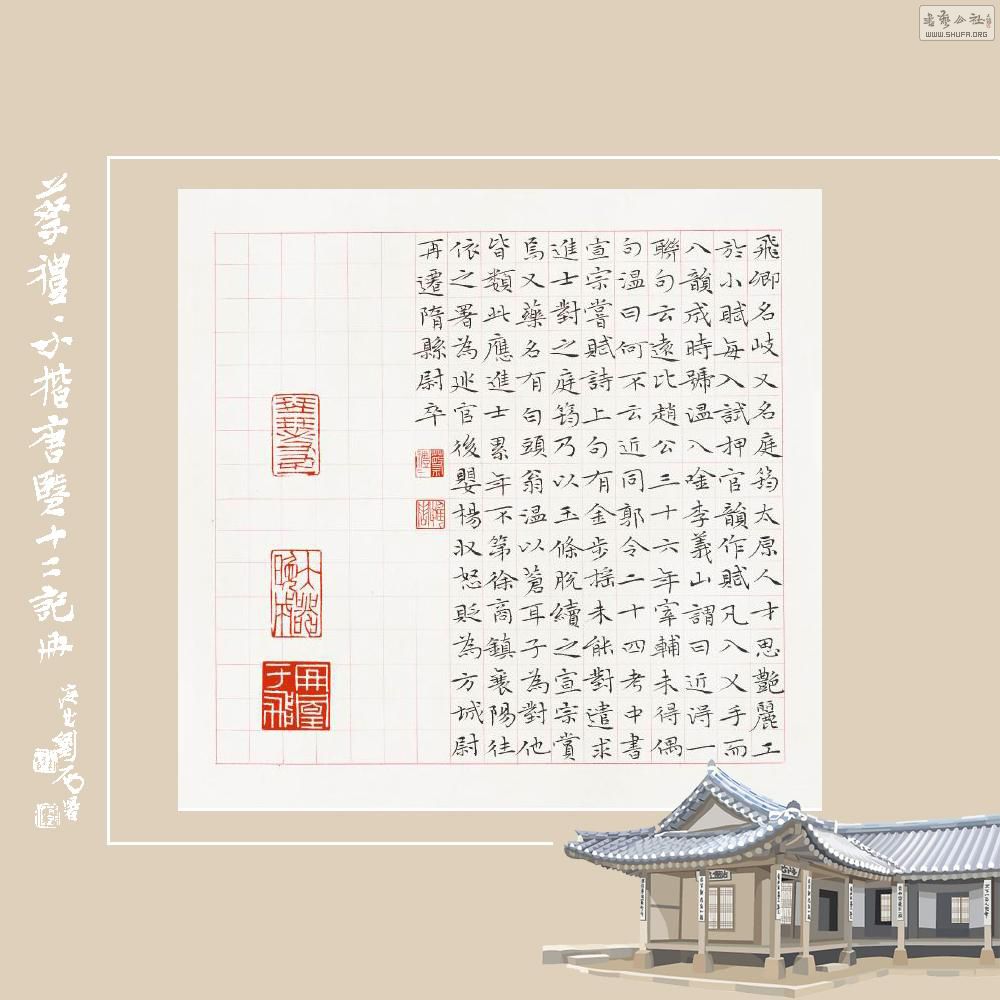 飛卿名岐又名庭筠太原人才思艷麗工
於小賦每入試押官韻作賦凡八叉手而
八韻成時號溫八唫李義山謂曰近得一
聯句云遠比趙公三十六年宰輔未得偶
句溫曰何不云近同郭令二十四考中書
宣宗嘗賦詩上句有金步搖未能對遣求
進士對之庭筠乃以玉條脫續之宣宗賞
焉又藥名有白頭翁溫以蒼耳子為對他
皆類此應進士累年不第徐商鎮襄陽往
依之署為巡官後嬰楊收怒貶為方城尉
再遷隋縣尉卒
大器晚成
蔡禮·小楷唐賢十三記冊
劉石署
書藝公社
WWW.SHUFA.ORG